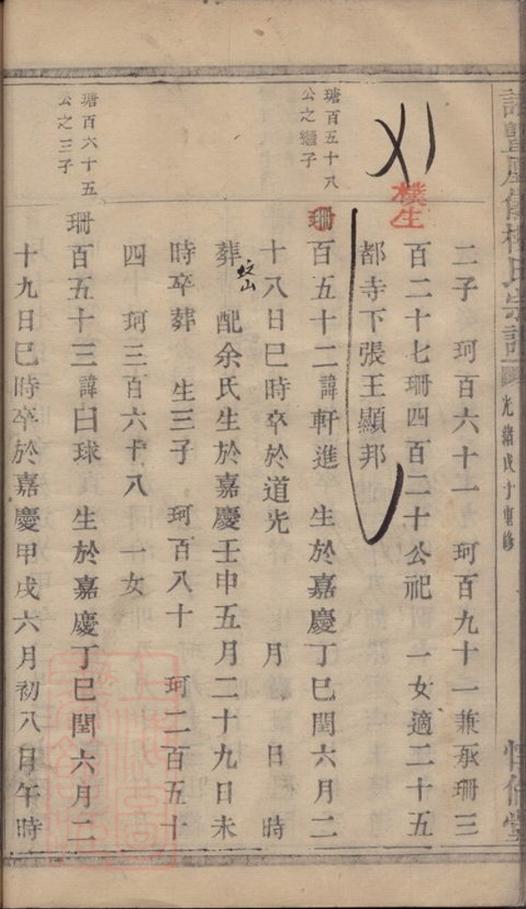 光緒戊子重修
二子　珂百六十一　珂百九十一兼承珊三
百二十七珊四百二十公祀　一女適二十五
都寺下張王顯邦
樸生
瑭百五十八
公之繼子
珊百五十二諱軒進　生於嘉慶丁巳閏六月二
十八日巳時卒於道光　月　日　時
葬　配余氏生於嘉慶壬申五月二十九日未
時卒葬　生三子　珂百八十　珂二百五十
四　珂三百六十八　一女
瑭百六十五
公之三子
珊百五十三諱曰球　生於嘉慶丁巳閏六月二
十九日巳時卒於嘉慶甲戌六月初八日午時